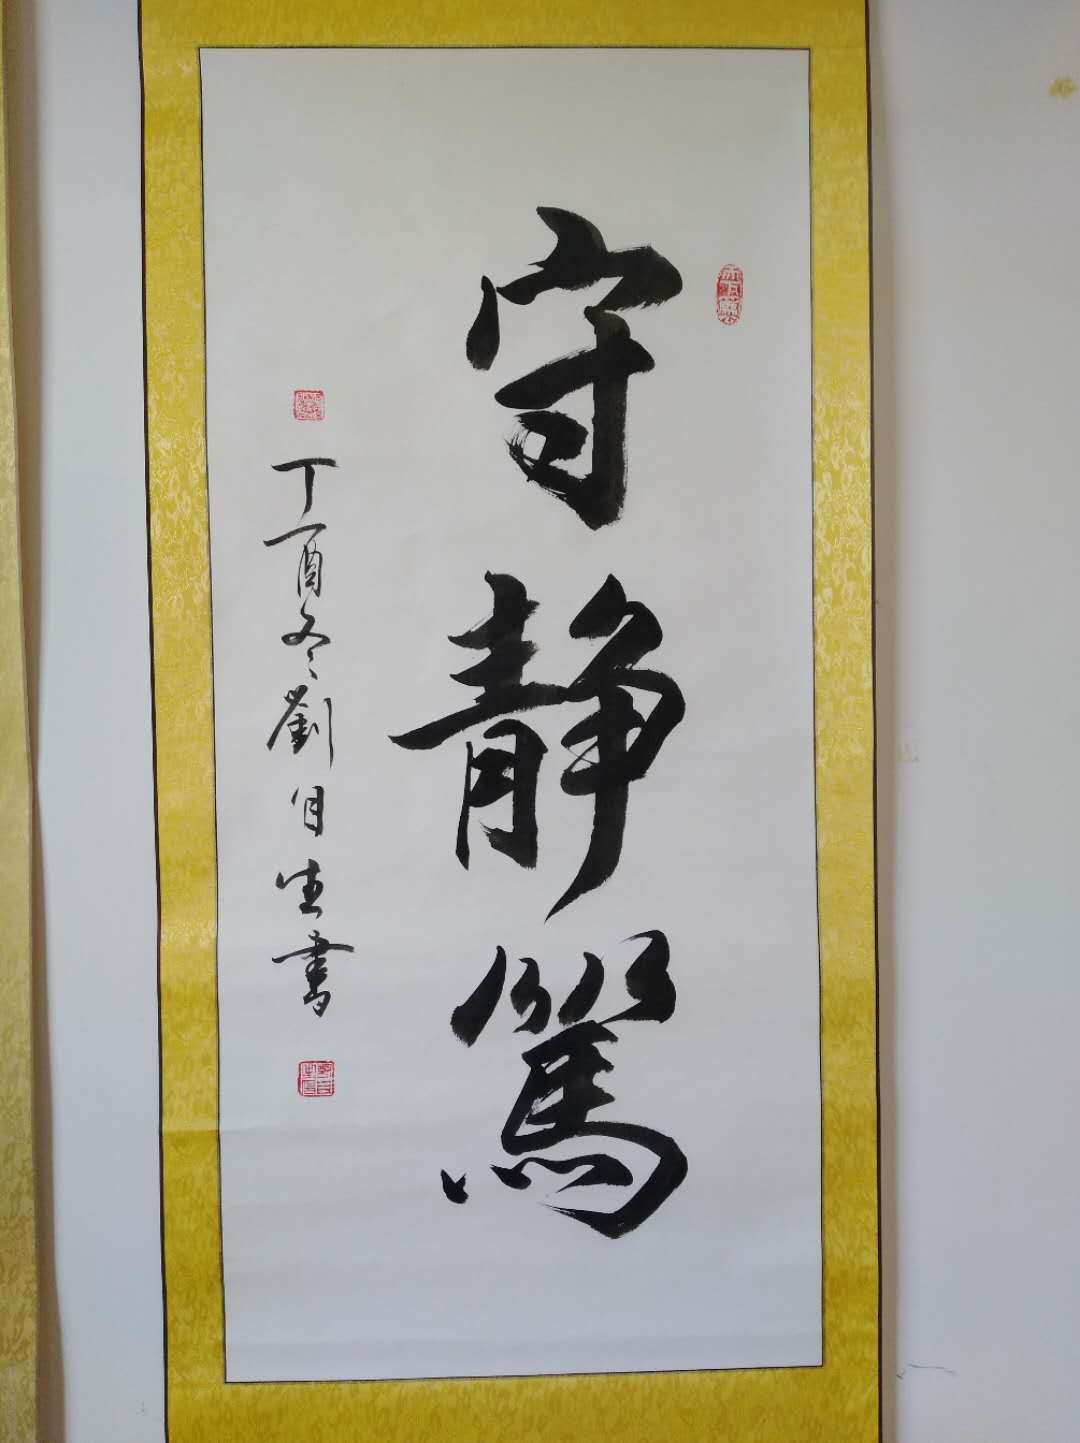 守静篤
丁酉冬劉日生書